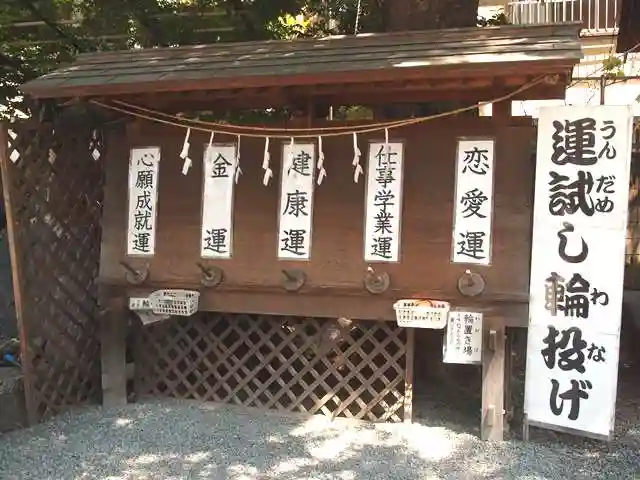 運試し輪投げ
うんだめ
わな
恋愛運
仕事学業運
健康運
金運
心願成就運
輪置き場